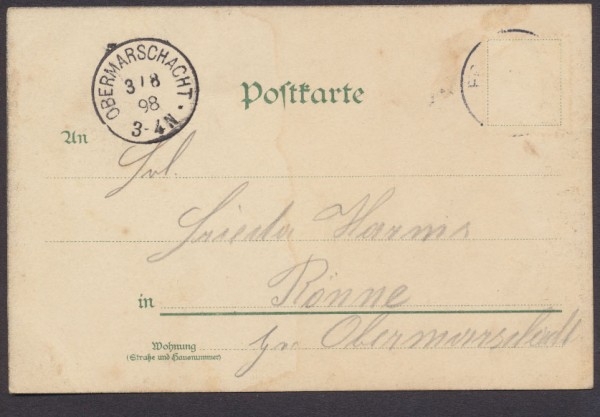 OBERMARSCHACHT
3/8
98
3-4N
Postkarte
An
Frl.
Frieda Harms
in Rönne
Wohnung
(Straße und Hausnummer)
Obermarschacht